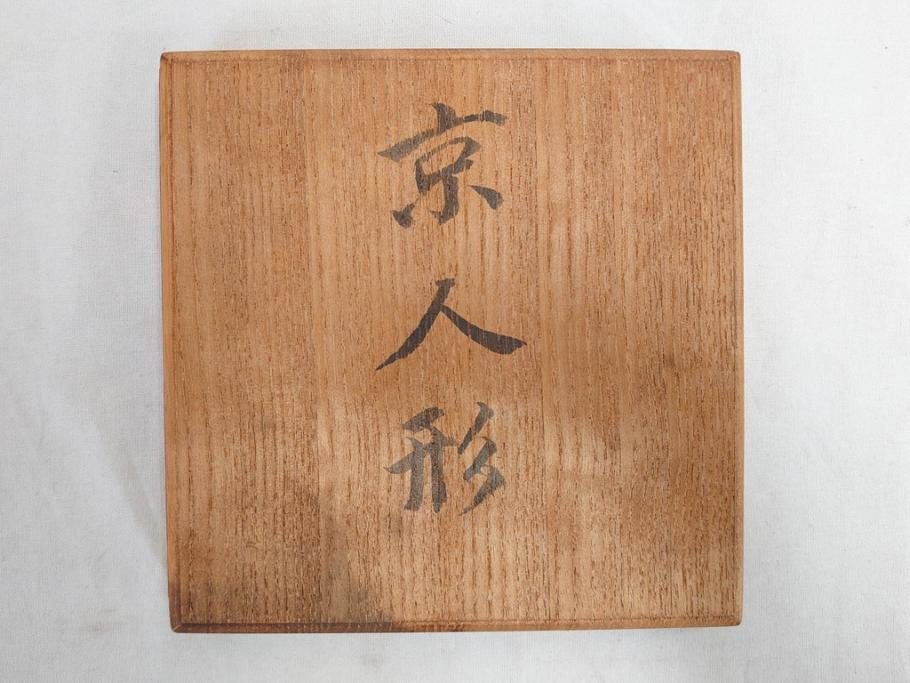 京人形